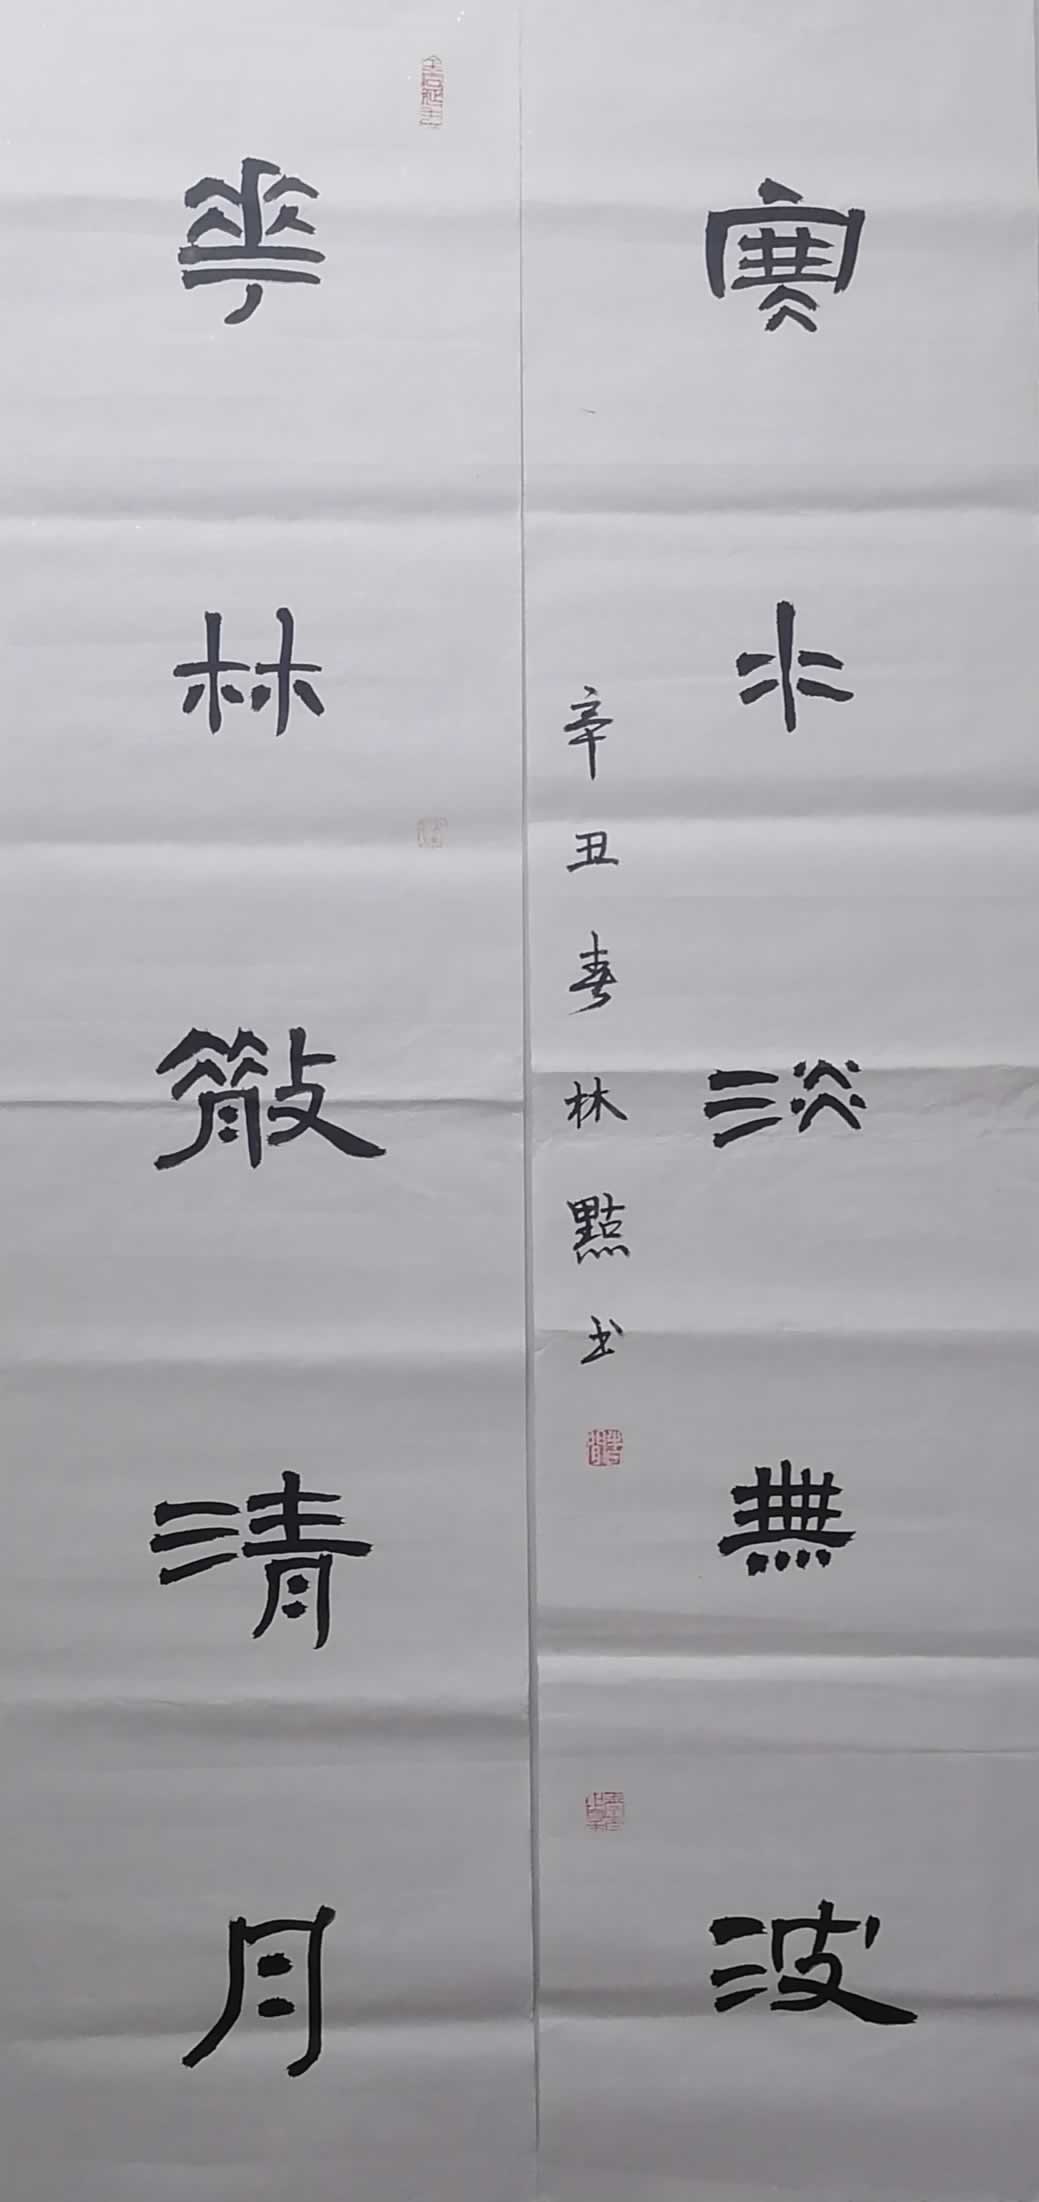 寒水淡無波
辛丑春林點书
華林散清月